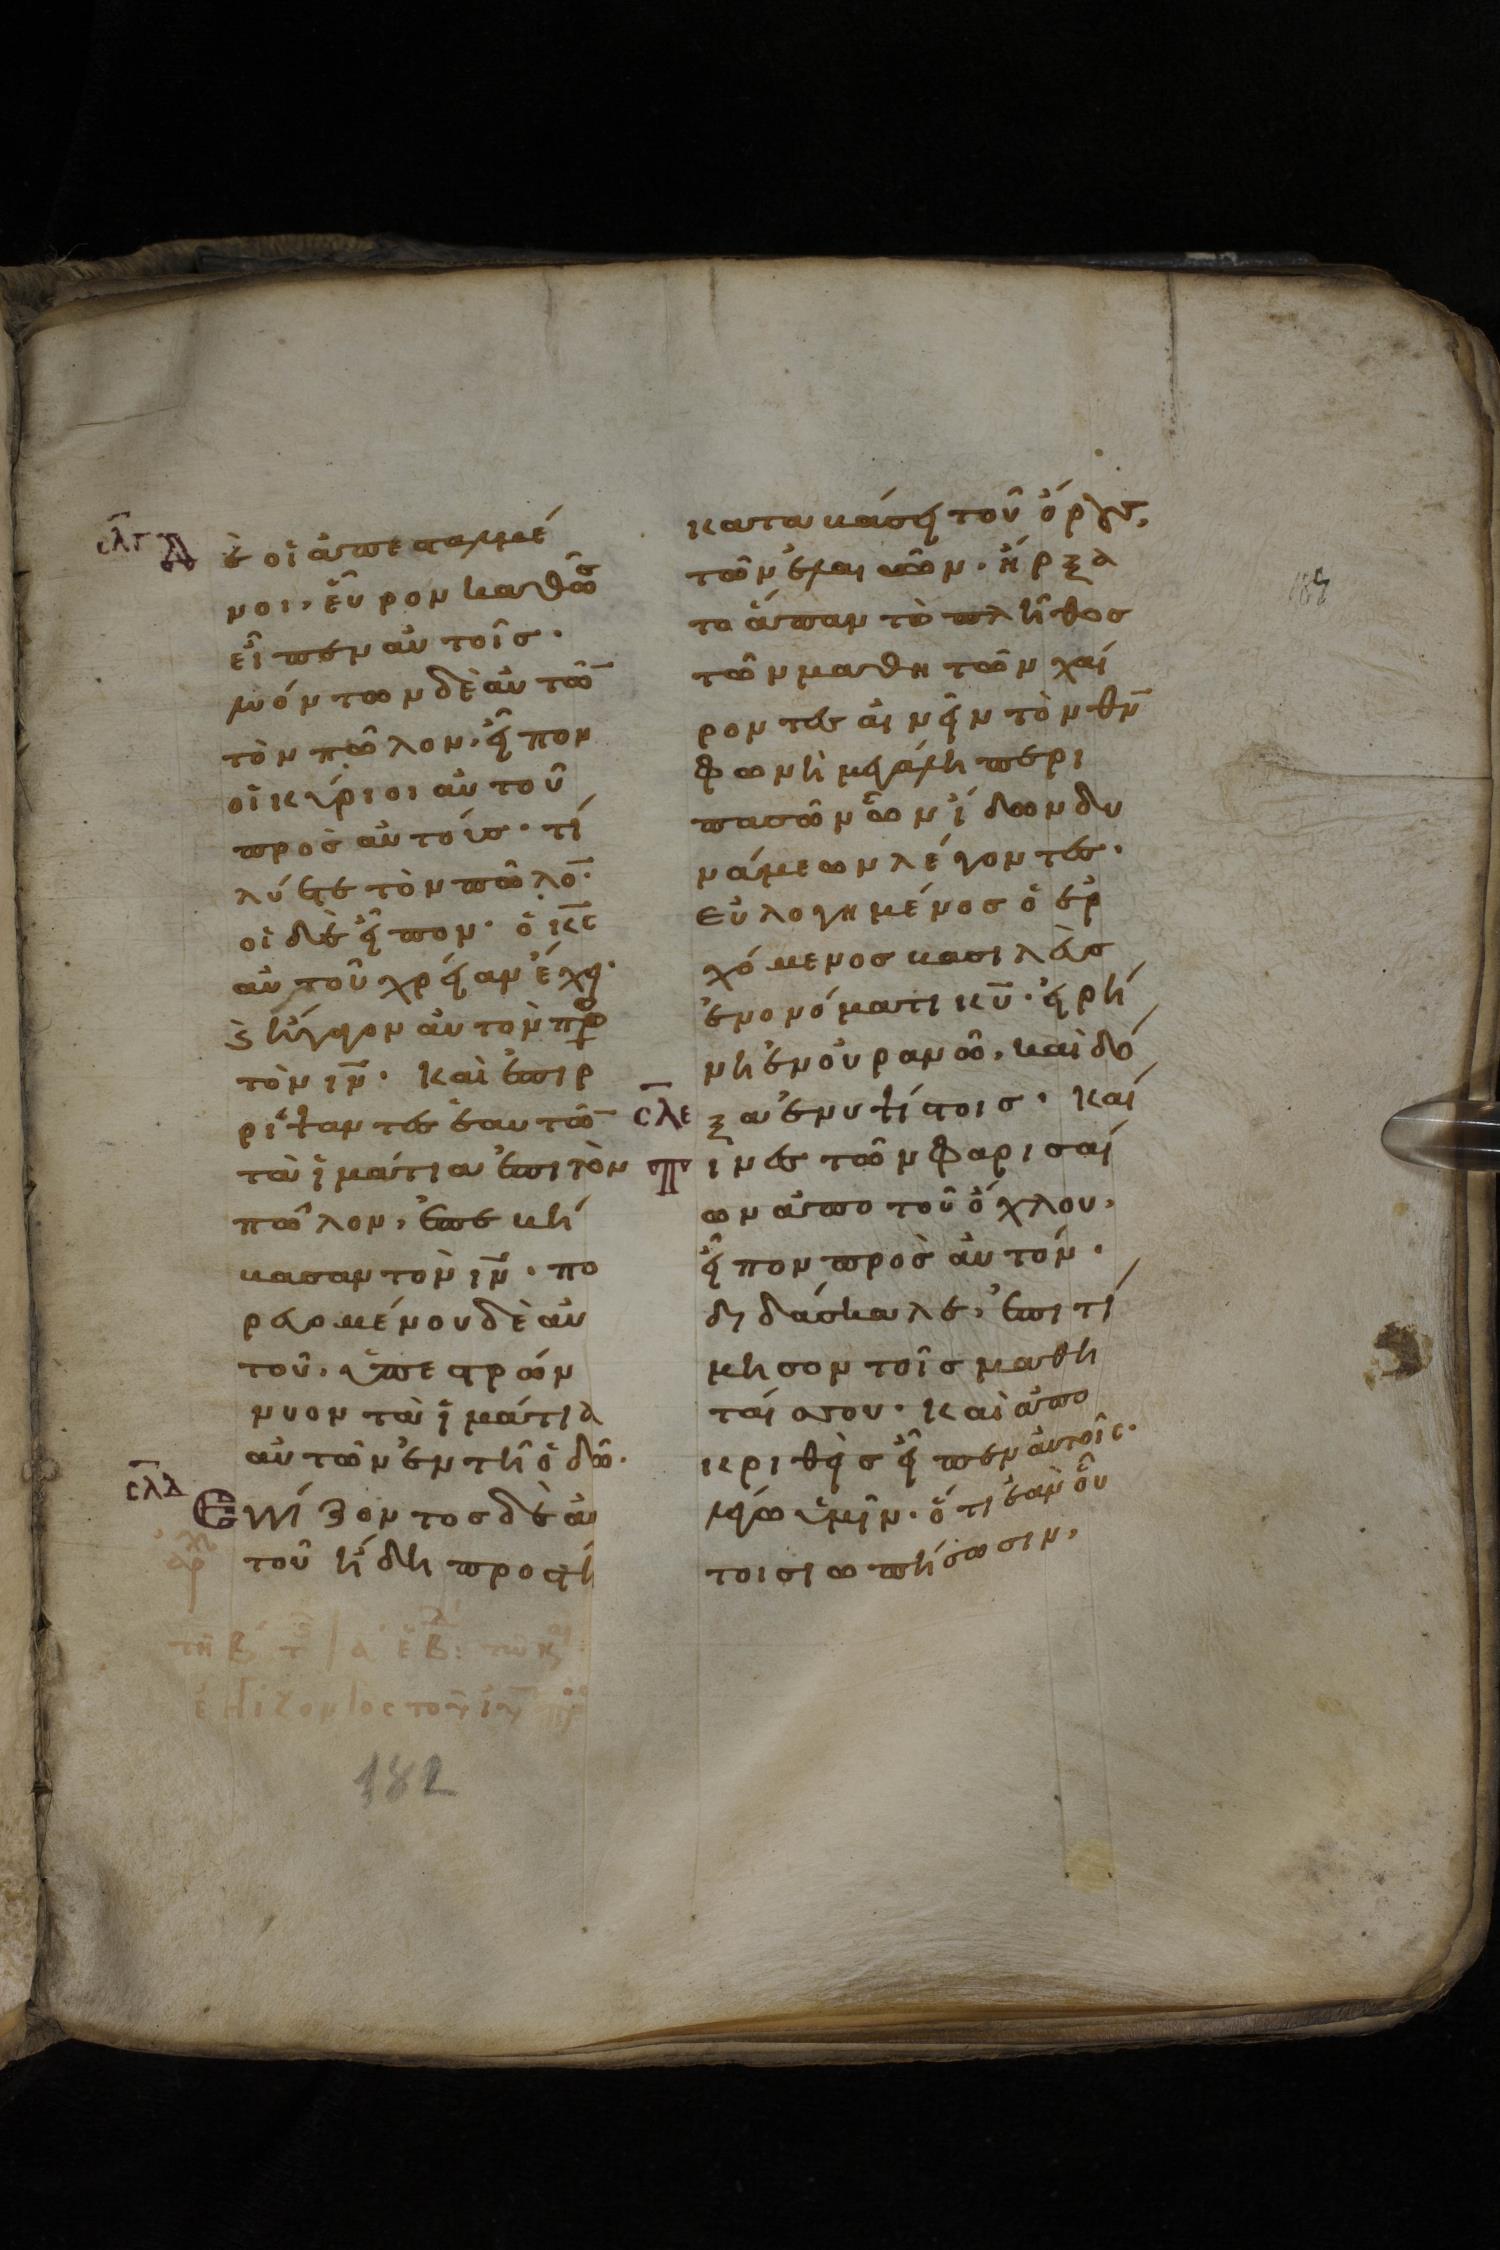 σλγ Δ
ὲ οἱ ἀπεσταλμέ
νοι, εὗρον καθὼς
εἶπεν αὐτοῖς·
λυόντων δὲ αὐτῶ̅
τὸν πῶλον, εἶπον
οἱ κύριοι αὐτοῦ
πρὸς αὐτούς· τί
λύετε τὸν πῶλο̅·
οἱ δὲ εἶπον· ὁ κ̅ς̅
αὐτοῦ χρείαν ἔχει·
ϗ ἤγαγον αὐτὸν πρὸς
τὸν ι̅ν̅· καὶ ἐπιρ
ρίψαντες ἑαυτῶ̅
τὰ ἱμάτια ἐπὶ τὸν
πῶλον, ἐπεβί
βασαν τὸν ι̅ν̅· πο
ρευομένου δὲ αὐ
τοῦ, ὑπεστρών
νυον τὰ ἱμάτια
αὐτῶν ἐν τῆ ὁδῶ·
σλδ
Ἐγγίζοντος δὲ αὐ
τοῦ ἤδη πρὸς τῆ
ἐγγίζοντος τοῦ ι̅υ̅
182
καταβάσει τοῦ ὄρους,
τῶν ἐλαιῶν· ἤρξα
το ἅπαν τὸ πλῆθος
τῶν μαθητῶν χαί
ροντες αἰνεῖν τὸν θ̅ν̅
φωνῆ μεγάλη περι
πασῶν ὧν ἴδων δυ
νάμεων λέγοντες·
εὐλογημένος ὁ ἐρ
χόμενος βασιλεὺς
ἐν ὀνόματι κ̅υ̅· εἰρή
νη ἐν οὐρανῶ, καὶ δό
σλε ξα ἐν ὑψίστοις· καί
τινες τῶν φαρισαί
ων ἀπο τοῦ ὄχλου,
εἶπον πρὸς αὐτόν·
διδάσκαλε, ἐπιτί
μησον τοῖς μαθη
ταῖς σου· καὶ ἀπο
κριθεὶς εἶπεν αὐτοῖς·
λέγω ὑμῖν· ὅτι ἐὰν οὗ
τοι σιωπήσωσιν,